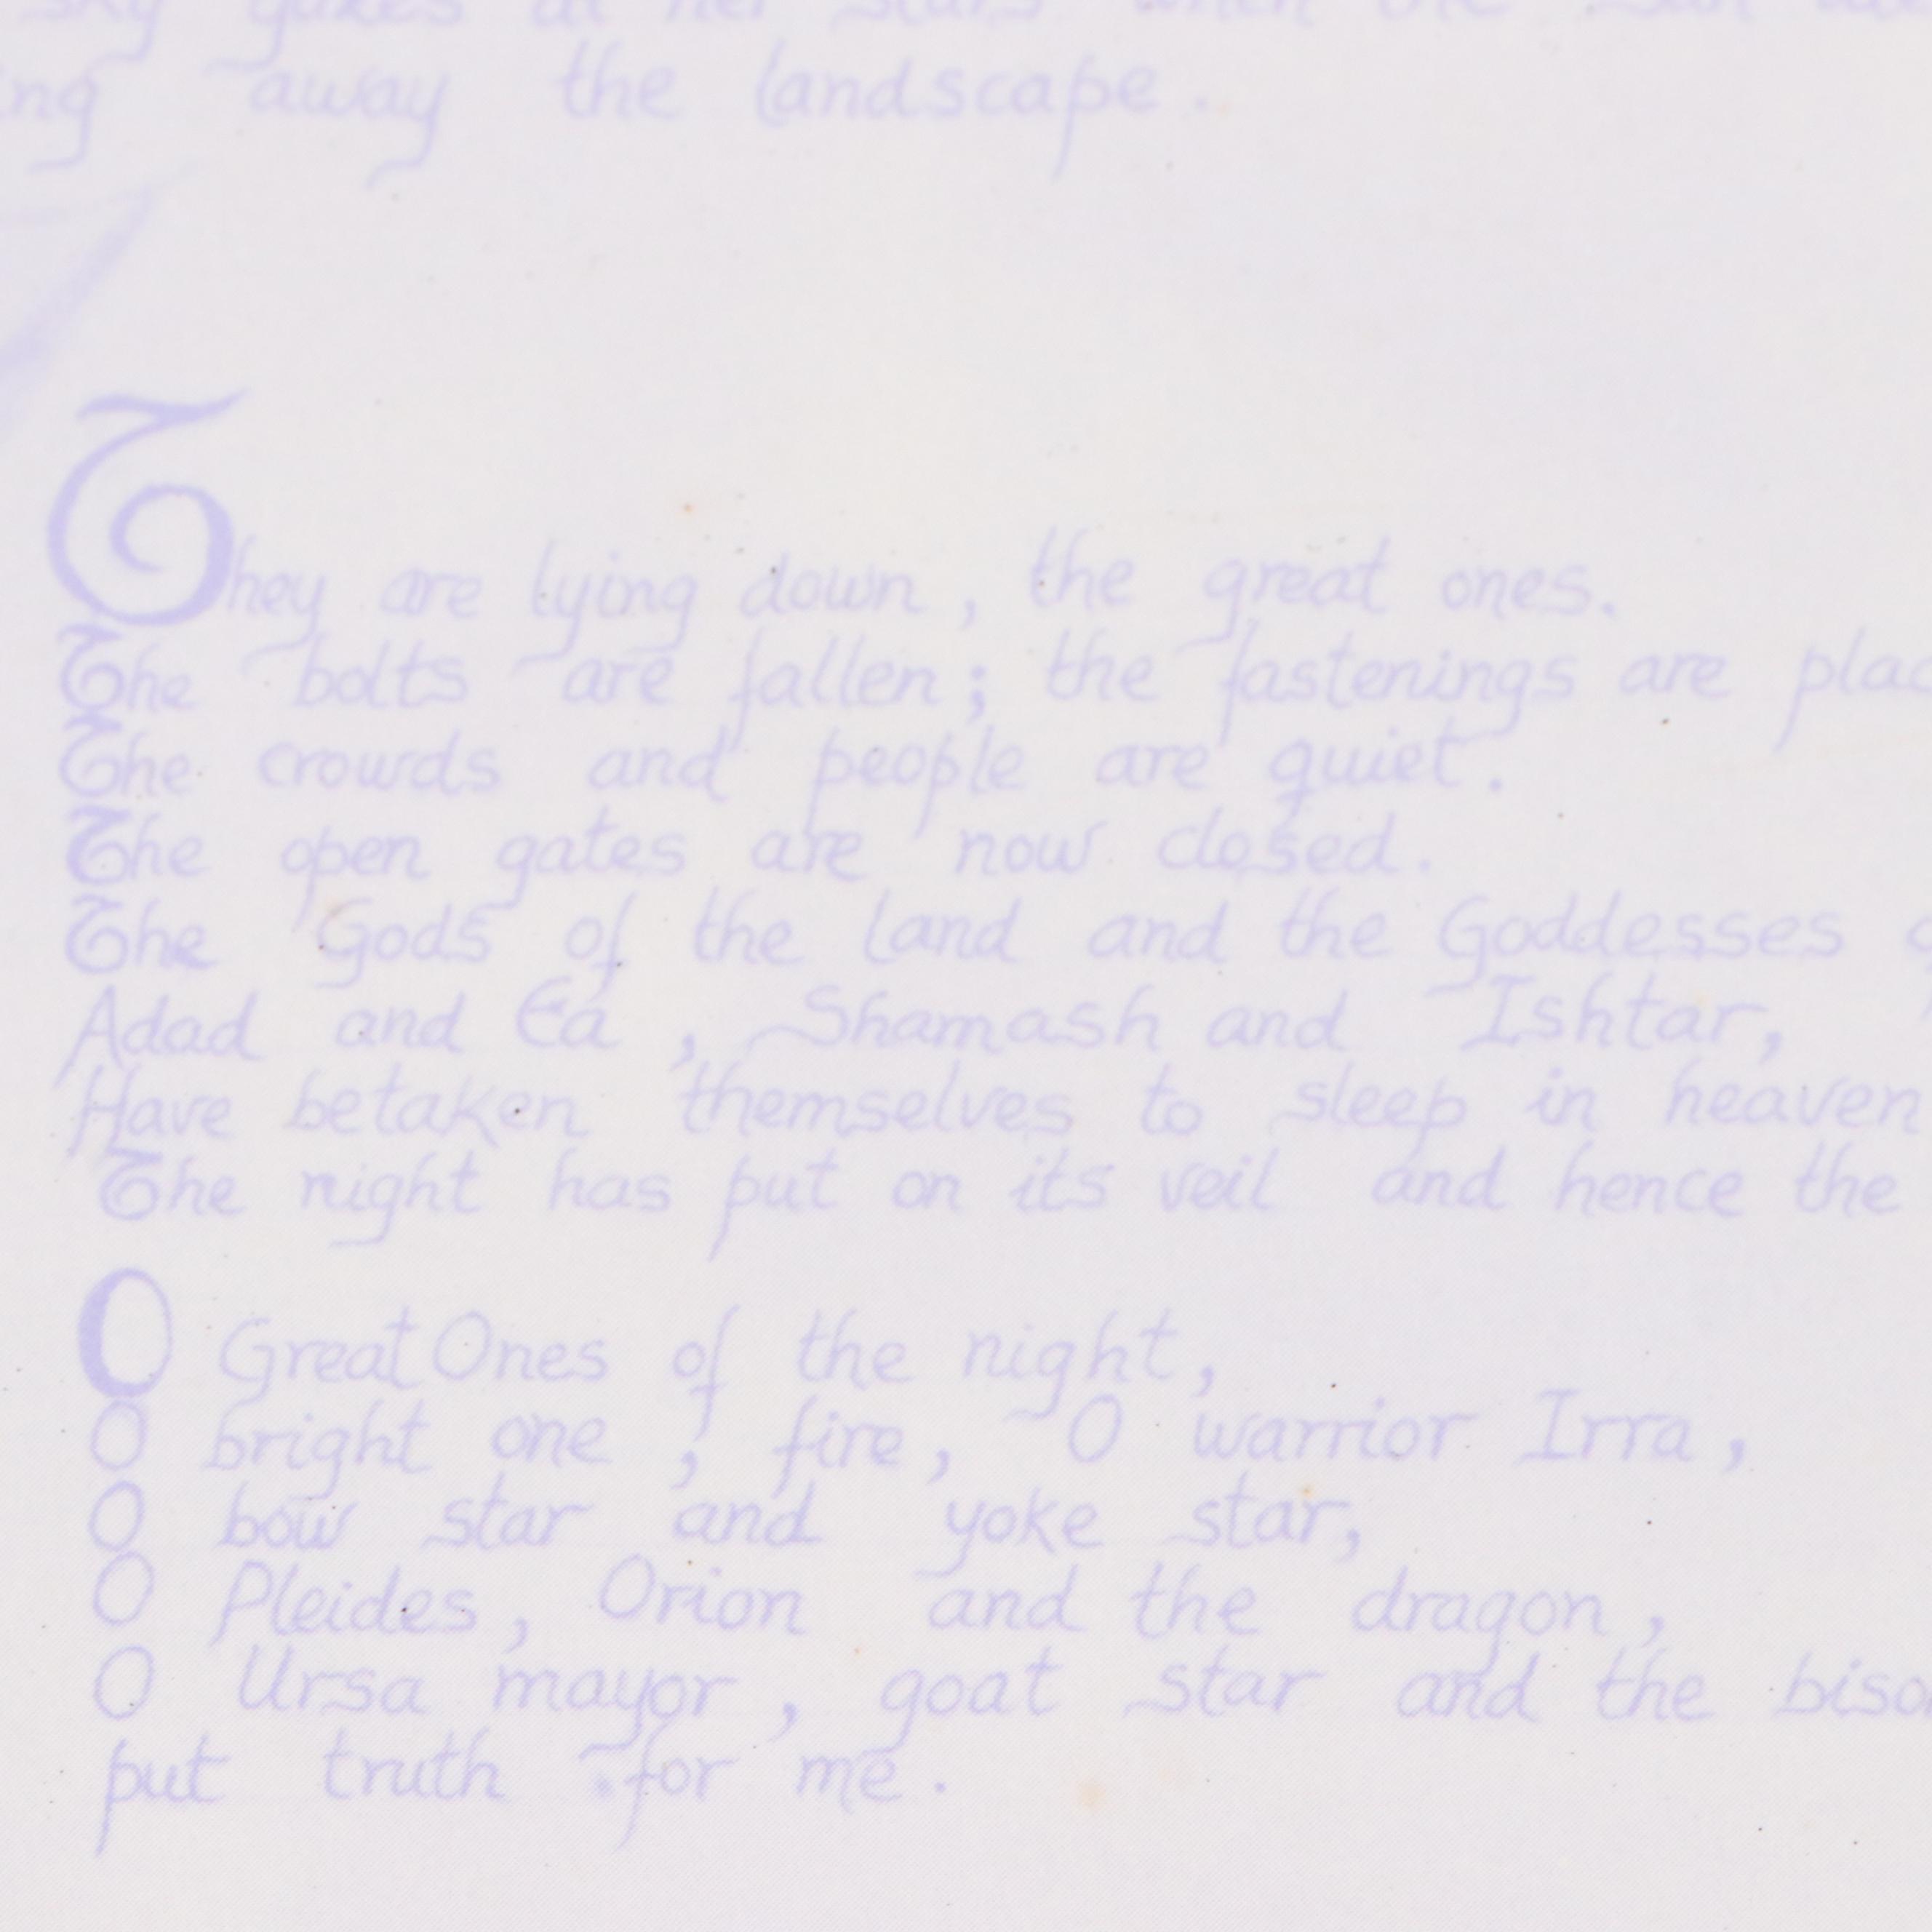 sky gazes at her stars when the sun
away the landscape.
They are lying down, the great ones.
The bolts are fallen; the fastenings are plac
The crowds and people are quiet.
The open gates are now closed.
The Gods of the land and the Goddesses
Adad and Ea, Shamash and Ishtar,
Have betaken themselves to sleep in heaven
The night has put on its veil and hence the
O Great Ones of the night,
O bright one, fire, O warrior Irra,
O bow star and yoke star,
O Pleides, Orion and the dragon,
O Ursa mayor, goat star and the biso
put truth for me.